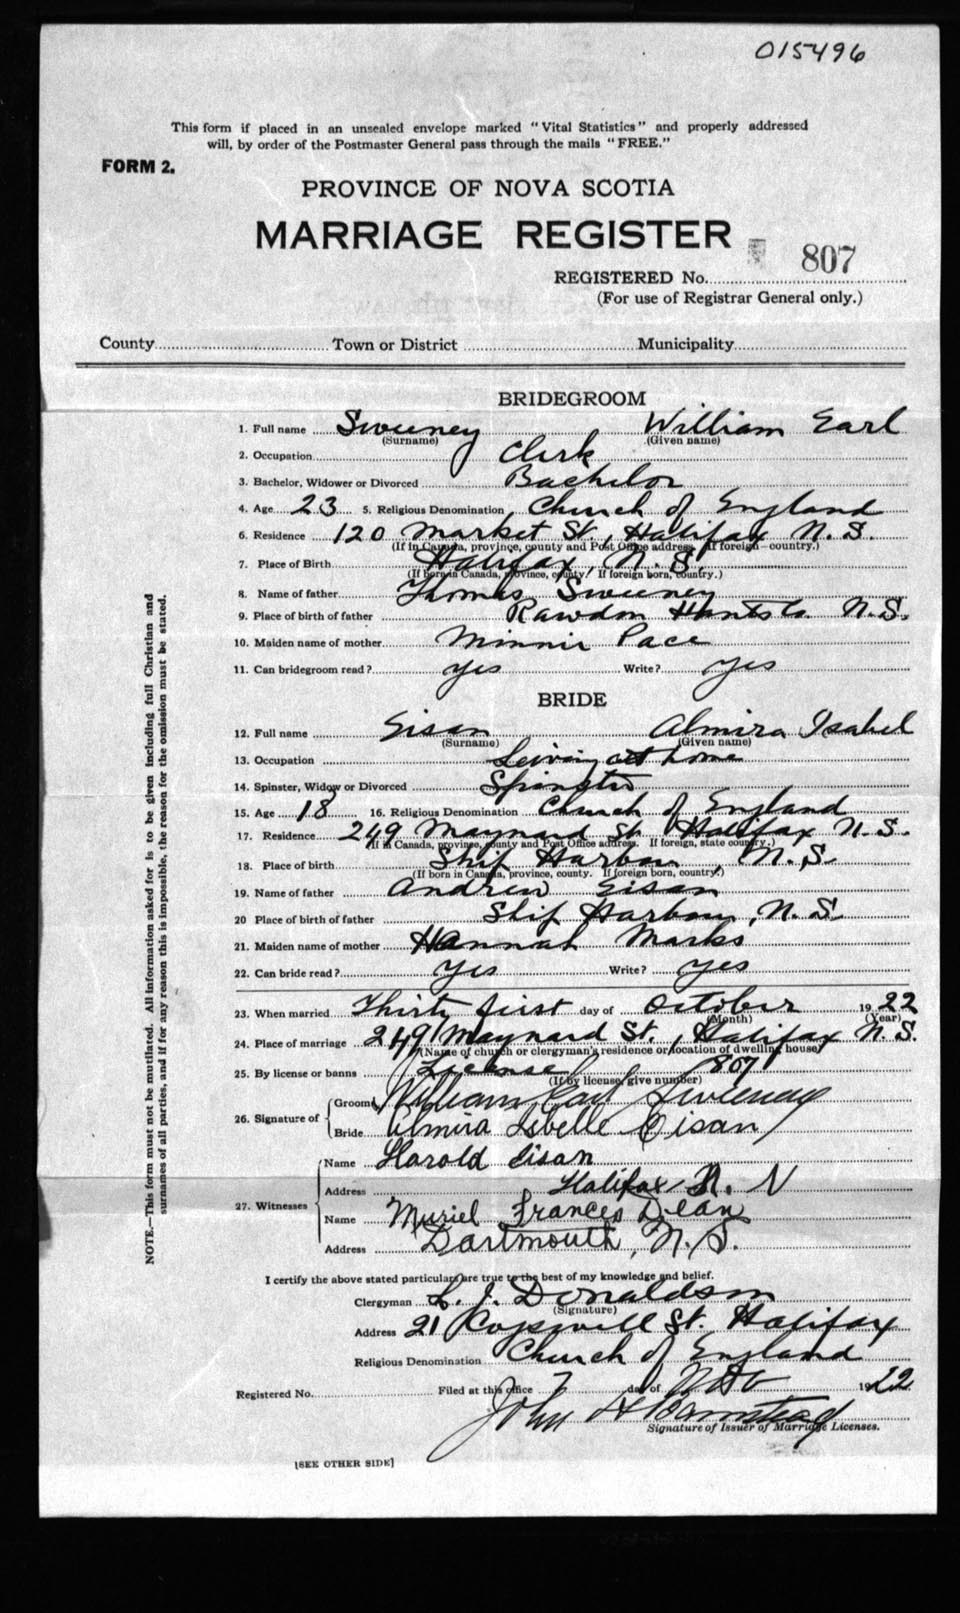 015496
This form if placed in an unsealed envelope marked "Vital Statistics" and properly addressed
will, by order of the Postmaster General pass through the mails "FREE."
FORM 2.
PROVINCE OF NOVA SCOTIA
MARRIAGE REGISTER
REGISTERED No. 807
(For use of Registrar General only.)
County Town or District Municipality
BRIDEGROOM
1. Full name Sweeney William Earl
(Surname) (Given name)
2. Occupation Clerk
3. Bachelor, Widower or Divorced Bachelor
4. Age 23 5. Religious Denomination Church of England
6. Residence 120 Market St., Halifax N.S.
(If in Canada, province, county and Post Office address. If foreign—country.)
7. Place of Birth Halifax, N.S.
(If born in Canada, province, county. If foreign born, country.)
8. Name of father Thomas Sweeney
9. Place of birth of father Rawdon Hants Co. N.S.
10. Maiden name of mother Minnie Pace
11. Can bridegroom read? yes Write? yes
BRIDE
12. Full name Eisan Almira Isabel
(Surname) (Given name)
13. Occupation Living at home
14. Spinster, Widow or Divorced Spinster
15. Age 18 16. Religious Denomination Church of England
17. Residence 249 Maynard St. Halifax N.S.
(If in Canada, province, county and Post Office address. If foreign, state country.)
18. Place of birth Ship Harbour, N.S.
(If born in Canada, province, county. If foreign born, country.)
19. Name of father Andrew Eisan
20 Place of birth of father Ship Harbour, N.S.
21. Maiden name of mother Hannah Marks
22. Can bride read? yes Write? yes
23. When married Thirty first day of October 1922
(Month) (Year)
24. Place of marriage 249 Maynard St., Halifax N.S.
(Name of church or clergyman's residence or location of dwelling house)
25. By license or banns License 807
(If by license, give number)
26. Signature of Groom William Earl Sweeney
Bride Almira Isbelle Eisan
27. Witnesses Name Harold Eisan
Address Halifax N.
Name Muriel Frances Dean
Address Dartmouth, N.S.
I certify the above stated particulars are true to the best of my knowledge and belief.
Clergyman L. J. Donaldson
(Signature)
Address 21 St. Halifax
Religious Denomination Church of England
Registered No. Filed at this office 7 day of Nov 1922
John H Barnstead
Signature of Issuer of Marriage Licenses.
[SEE OTHER SIDE]
NOTE.—This form must not be mutilated. All information asked for is to be given including full Christian and
surnames of all parties, and if for any reason this is impossible, the reason for the omission must be stated.